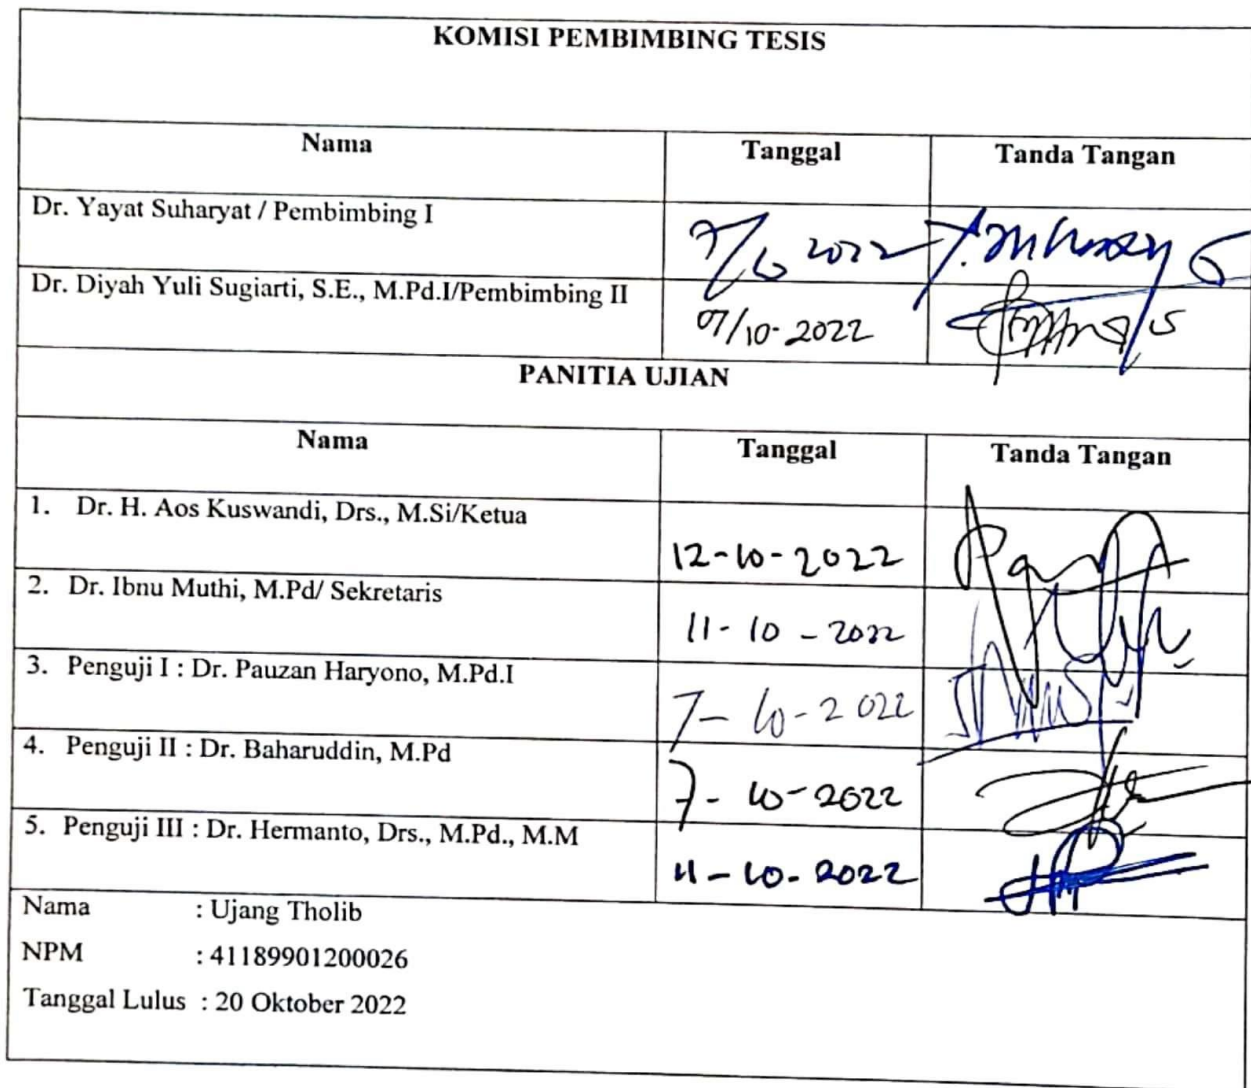 KOMISI PEMBIMBING TESIS
Nama Tanggal Tanda Tangan
Dr. Yayat Suharyat / Pembimbing I 7/10 2022
Dr. Diyah Yuli Sugiarti, S.E., M.Pd.I/Pembimbing II 07/10-2022
PANITIA UJIAN
Nama Tanggal Tanda Tangan
1. Dr. H. Aos Kuswandi, Drs., M.Si/Ketua 12-10-2022
2. Dr. Ibnu Muthi, M.Pd/ Sekretaris 11-10-2022
3. Penguji I : Dr. Pauzan Haryono, M.Pd.I 7-10-2022
4. Penguji II : Dr. Baharuddin, M.Pd 7-10-2022
5. Penguji III : Dr. Hermanto, Drs., M.Pd., M.M 11-10-2022
Nama : Ujang Tholib
NPM : 41189901200026
Tanggal Lulus : 20 Oktober 2022